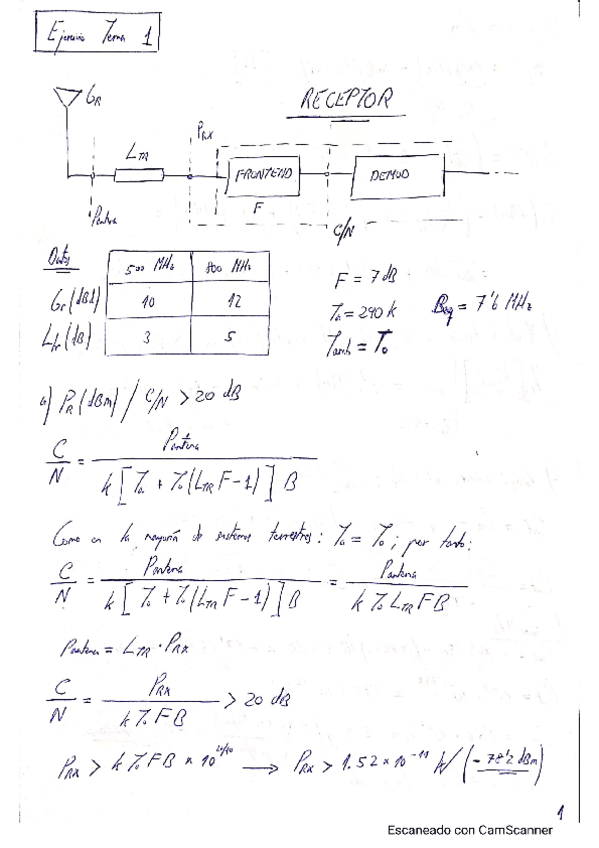 Ejercicio Tema 1
GR
RECEPTOR
PRX
LTR
FRONTEND
DEMOD
F
Pantena
C/N
Datos
500 MHz 800 MHz
F = 7 dB
Gr (dBi) 10 12
T0 = 290 k
Beq = 7'6 MHz
Ltr (dB) 3 5
Tamb = T0
a) PR (dBm) / C/N > 20 dB
C/N = Pantena / k [Ta + T0 (LTR F - 1)] B
Como en la mayoría de sistemas terrestres: Ta = T0; por tanto:
C/N = Pantena / k [T0 + T0 (LTR F - 1)] B = Pantena / k T0 LTR F B
Pantena = LTR · PRX
C/N = PRX / k T0 F B > 20 dB
PRX > k T0 F B × 10^20/10 → PRX > 1.52 × 10^-11 W (-78'2 dBm)
1
Escaneado con CamScanner